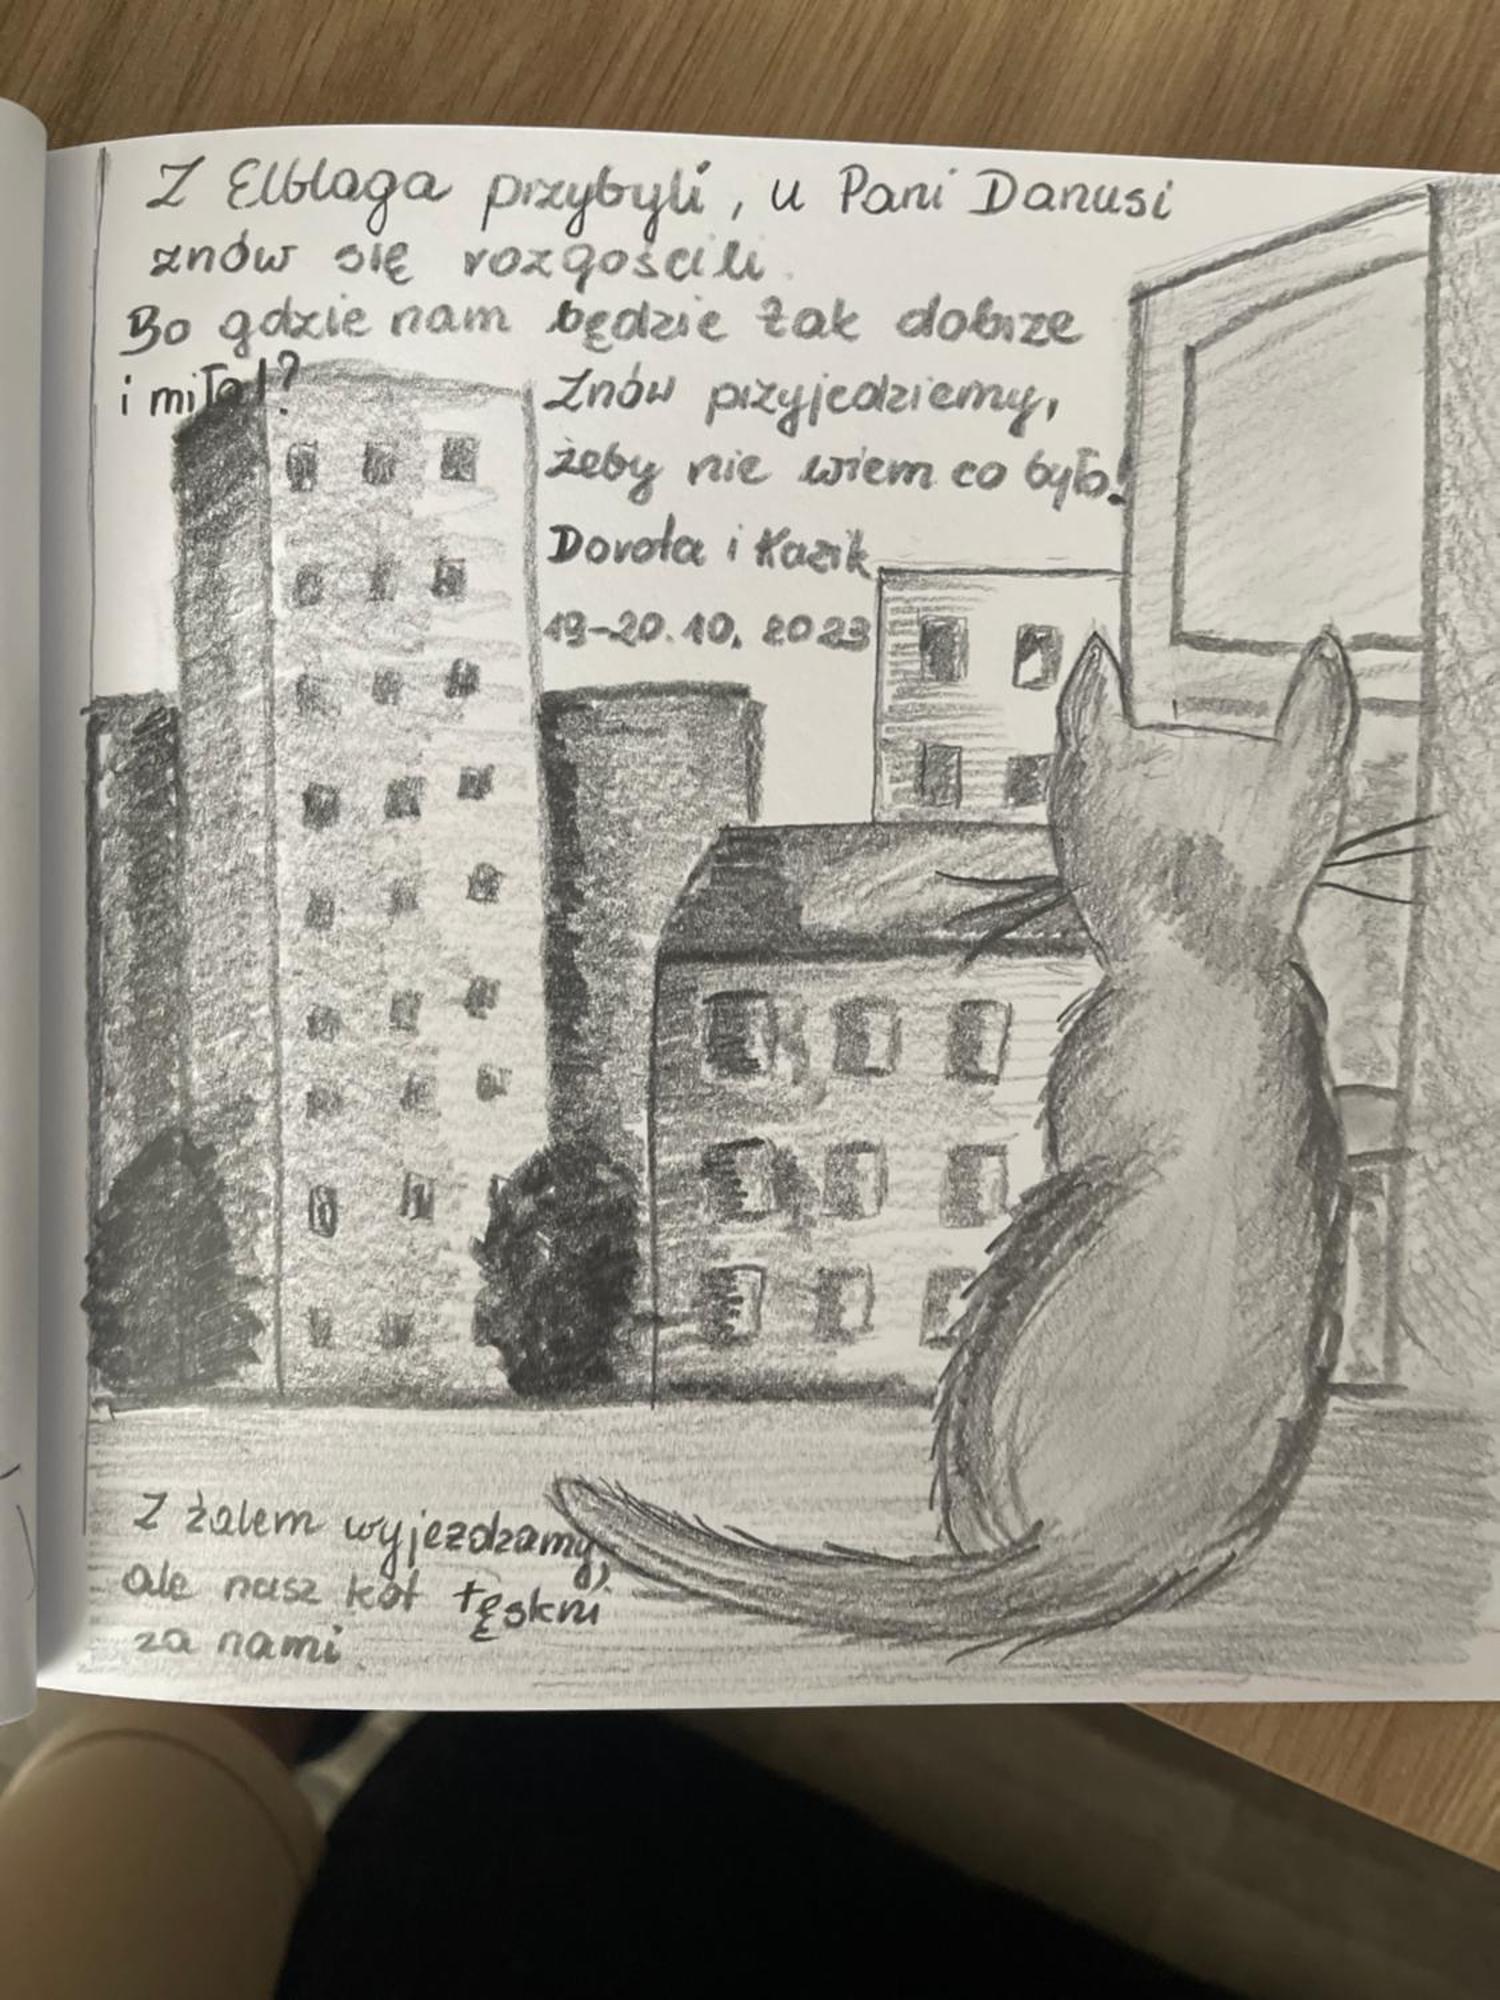 Z Elbląga przybyli, u Pani Danusi
znów się rozgościli.
Bo gdzie nam będzie tak dobrze
i miło!?
Znów przyjedziemy,
żeby nie wiem co było!
Dorota i Kazik
19-20.10.2023
Z żalem wyjeżdzamy,
ale nasz kot tęskni
za nami.